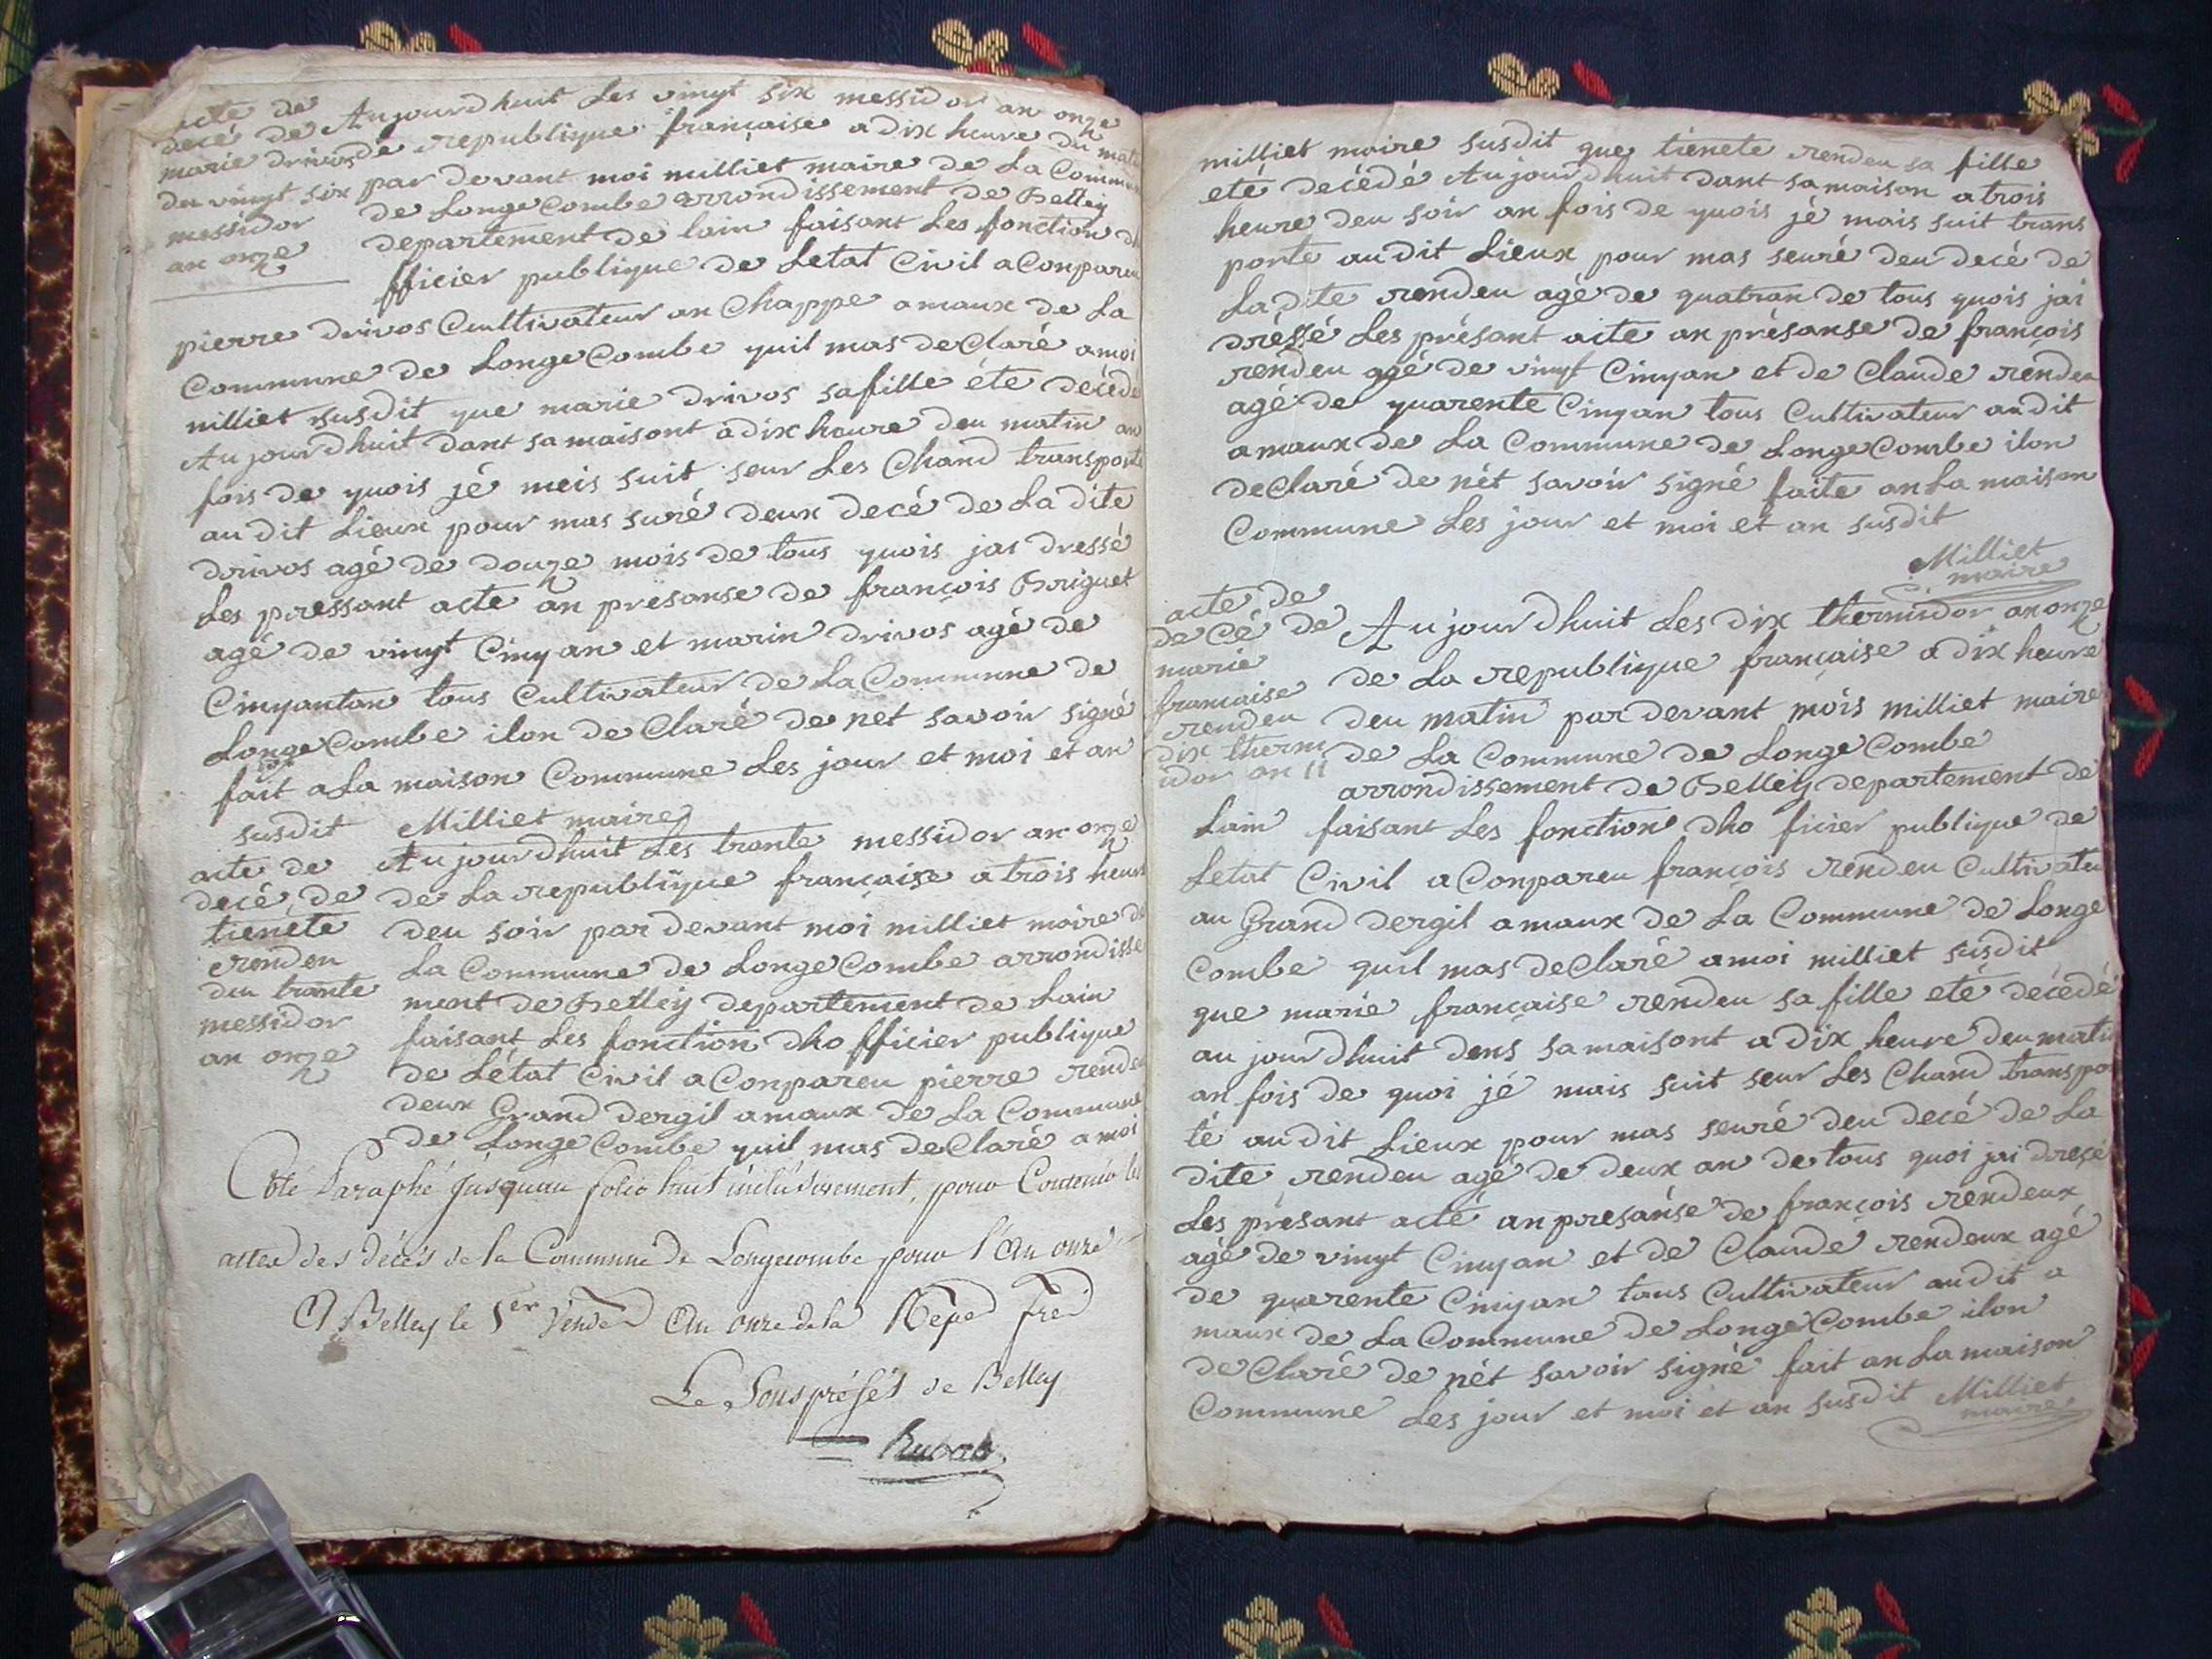 acte de
decé de
marie drivos
du vingt six
messidor
an onze
Aujourdhuit Les vingt six messidor an onze
de republique française a dix heure du matin
par devant moi milliet maire de La Commune
de Longecombe arrondissement de Belley
departement de lain faisant Les fonction d
fficier publique de Letat Civil a Conpareu
pierre drivos Cultivateur an Chappe amaux de La
Commune de LongeCombe quil mas deClaré amoi
milliet susdit que marie drivos safille éte décédé
Aujourdhuit dant samaisont a dix heure deu matin an
fois de quois jé meis suit seur Les Chand transporte
audit Lieux pour mas suré deux decé de La dite
drivos agé de douze mois de tous quois jai dressé
Les pressant acte an presanse de françois Boriguet
agé de vingt Cinqan et marin drivos agé de
Cinquantan tous Cultivateur de La Commune de
LongeCombe ilon de Claré de nét savoir signé
fait a La maison Commune Les jour et moi et an
susdit Milliet maire
acte de
decé de
tienete
rendeu
deu trante
messidor
an onze
Aujourdhuit Les trante messidor an onze
de La republique française a trois heure
deu soir par devant moi milliet maire de
La Commune de LongeCombe arrondisse
ment de Belley departement de Lain
faisant Les fonction dho fficier publique
de Létat Civil a Conpareu pierre rendeu
deux Grand dergil amaux de La Commune
de LongeCombe quil mas deClaré amoi
Coté Paraphé jusquau folio huit inclusivement, pour Contenir les
actes des décès de la Commune de Longecombe pour l'an onze
A Belley le 1er Vende an onze de la Repe fre
Le Sous préfet de Belley
milliet maire susdit que tienete rendeu sa fille
eté decédé Aujourdhuit dant samaison atrois
heure deu soir an fois de quois jé mais suit trans
porte audit Lieux pour mas seuré deu decé de
La dite rendeu agé de quatran de tous quois jai
dressé Les présant acte an présanse de françois
rendeu agé de vingt Cinqan et de Claude rendeu
agé de quarente Cinqan tous Cultivateur audit
amaux de La Commune de LongeCombe ilon
deClaré de nét savoir signé faite an La maison
Commune Les jour et moi et an susdit
Milliet
maire
acte de
decé de
marie
francaise
rendeu
dix therm
idor an 11
Aujourdhuit Les dix thermidor an onze
de La republique française a dix heure
deu matin par devant mois milliet maire
de La Commune de LongeCombe
arrondissement de Belley departement de
Lain faisant Les fonction dho ficier publique de
Letat Civil a Conpareu françois rendeu Cultivateu
au Grand dergil amaux de La Commune de Longe
Combe quil mas deClaré amoi milliet susdit
que marie française rendeu sa fille eté décédé
aujourdhuit dens samaisont a dix heure deu matin
an fois de quoi jé mais suit seur Les Chand transpor
té audit Lieux pour mas seuré deu decé de La
dite rendeu agé de deux an de tous quoi jai dresé
Les présant acté an presansé de françois rendeux
agé de vingt Cinqan et de Claude rendeux agé
de quarente Cinqan tous Cultivateur audit a
maux de La Commune de LongeCombe ilon
deClaré de nét savoir signé fait an La maison
Commune Les jour et moi et an susdit Milliet
maire